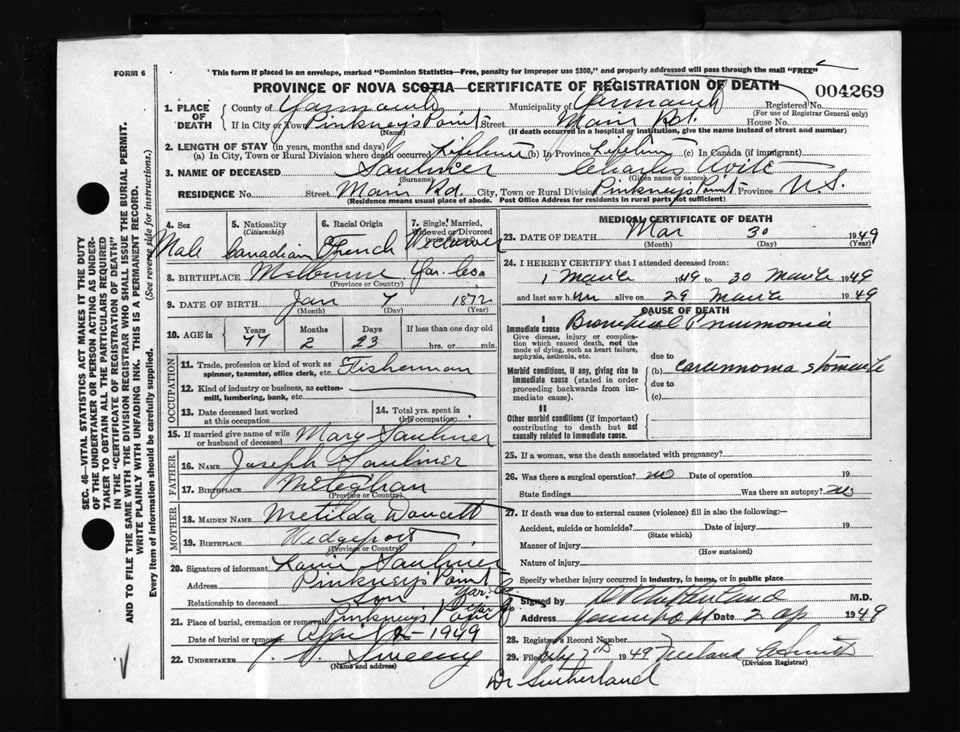 FORM 6
This form if placed in an envelope, marked "Dominion Statistics—Free, penalty for improper use $300," and properly addressed will pass through the mail "FREE"
PROVINCE OF NOVA SCOTIA—CERTIFICATE OF REGISTRATION OF DEATH
004269
1. PLACE OF DEATH
County of Yarmouth Municipality of Yarmouth Registered No.
(For use of Registrar General only)
If in City or Town Pinkney's Point Street Main Rd. House No.
(Name) (If death occurred in a hospital or institution, give the name instead of street and number)
2. LENGTH OF STAY (in years, months and days)
(a) In City, Town or Rural Division where death occurred Lifetime (b) In Province Lifetime (c) In Canada (if immigrant)
3. NAME OF DECEASED Saulnier Charles Avite
(Surname) (Given name or names)
RESIDENCE No. Street Main Rd. City, Town or Rural Division Pinkney's Point Province N.S.
(Residence means usual place of abode. Post Office Address for residents in rural parts not sufficient)
4. Sex
Male
5. Nationality (Citizenship)
Canadian
6. Racial Origin
French
7. Single, Married, Widowed or Divorced
Widower
8. BIRTHPLACE Melbourne Yar. Co.
(Province or Country)
9. DATE OF BIRTH Jan 7 1872
(Month) (Day) (Year)
10. AGE in Years Months Days If less than one day old
77 2 23 hrs. or min.
OCCUPATION
11. Trade, profession or kind of work as spinner, teamster, office clerk, etc. Fisherman
12. Kind of industry or business, as cotton-mill, lumbering, bank, etc.
13. Date deceased last worked at this occupation
14. Total yrs. spent in this occupation
15. If married give name of wife or husband of deceased Mary Saulnier
FATHER
16. NAME Joseph Saulnier
17. BIRTHPLACE Meteghan
(Province or Country)
MOTHER
18. MAIDEN NAME Metilda Doucett
19. BIRTHPLACE Wedgeport
(Province or Country)
20. Signature of informant Saulnier
Address Pinkney's Point Yar. Co.
Relationship to deceased Son
21. Place of burial, cremation or removal Pinkney's Point Yar. Co.
Date of burial or removal April 2 - 1949
22. UNDERTAKER Sweeny
(Name and address)
MEDICAL CERTIFICATE OF DEATH
23. DATE OF DEATH Mar 30 1949
(Month) (Day) (Year)
24. I HEREBY CERTIFY that I attended deceased from:
1 March 1949 to 30 March 1949
and last saw him alive on 29 March 1949
CAUSE OF DEATH
I
Immediate cause Bronchial Pneumonia
Give disease, injury or complication which caused death, not the mode of dying, such as heart failure, asphyxia, asthenia, etc.
due to
Morbid conditions, if any, giving rise to immediate cause (stated in order proceeding backwards from immediate cause).
(b) carcinoma stomach
due to
(c)
II
Other morbid conditions (if important) contributing to death but not causally related to immediate cause.
25. If a woman, was the death associated with pregnancy?
26. Was there a surgical operation? no Date of operation 19
State findings Was there an autopsy? no
27. If death was due to external causes (violence) fill in also the following:—
Accident, suicide or homicide? Date of injury 19
(State which)
Manner of injury
(How sustained)
Nature of injury
Specify whether injury occurred in industry, in home, or in public place
Signed by Sutherland M.D.
Address Date 2 Ap 1949
28. Registrar's Record Number
29. Filed July 7th 1949
(Division Registrar)
Dr Sutherland
SEC. 46—VITAL STATISTICS ACT MAKES IT THE DUTY
OF THE UNDERTAKER OR PERSON ACTING AS UNDER-
TAKER TO OBTAIN ALL THE PARTICULARS REQUIRED
IN THE "CERTIFICATE OF REGISTRATION OF DEATH"
AND TO FILE THE SAME WITH THE DIVISION REGISTRAR WHO SHALL ISSUE THE BURIAL PERMIT.
WRITE PLAINLY WITH UNFADING INK. THIS IS A PERMANENT RECORD.
Every item of information should be carefully supplied. (See reverse side for instructions.)